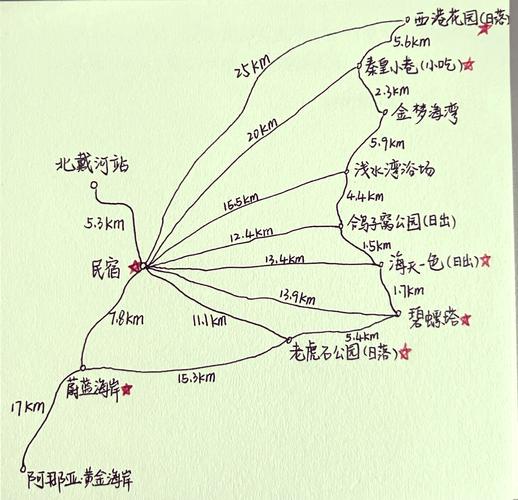 西港花园(日落)
5.6km
25km
秦皇小巷(小吃)
2.3km
20km
金梦海湾
5.9km
北戴河站
浅水湾浴场
15.5km
4.4km
5.3km
鸽子窝公园(日出)
12.4km
1.5km
民宿
13.4km
海天一色(日出)
13.9km
1.7km
7.8km
11.1km
碧螺塔
5.4km
老虎石公园(日落)
15.3km
蔚蓝海岸
17km
阿那亚·黄金海岸